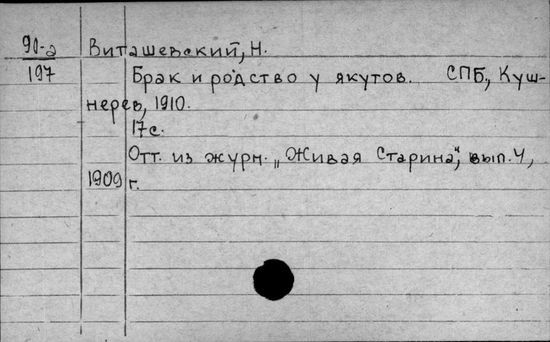 90-а
Виташевский, Н.
197
Брак и родство у якутов. СПБ., Куш-
нерев, 1910.
17с.
Отт. из журн. „Живая Старина", вып. 4,
1909 г.